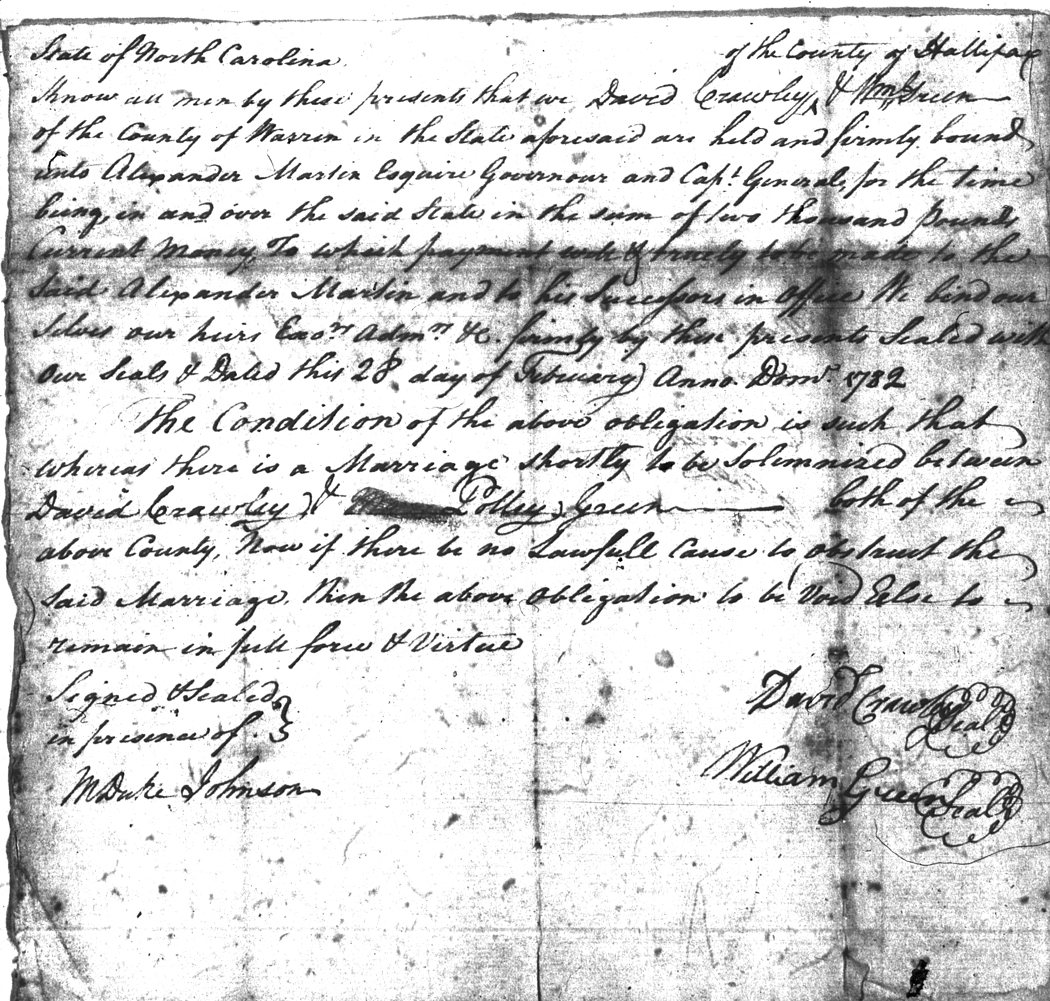 State of North Carolina
of the County of Hallifax
Know all men by these presents that we David Crawley, & Wm Green
of the County of Warren in the State aforesaid are held and firmly bound
unto Alexander Martin Esquire Governour and Capt. General, for the time
being, in and over the said State in the sum of two thousand pounds
Current Money, To which payment well & truely to be made to the
said Alexander Martin and to his Successors in Office We bind our
selves our heirs Exors Admrs &c. firmly by these presents Sealed with
our Seals & Dated this 28 day of February Anno. Domi. 1782
The Condition of the above obligation is such that
whereas there is a Marriage shortly to be Solemnized between
David Crawley, & Polley Green both of the
above County, Now if there be no Lawfull Cause to obstruct the
said Marriage. then the above obligation to be Void Else to
remain in full force & Virtue
Signed & Sealed
in presence of.
David Crawley Seal
MDuke Johnson
William Green Seal